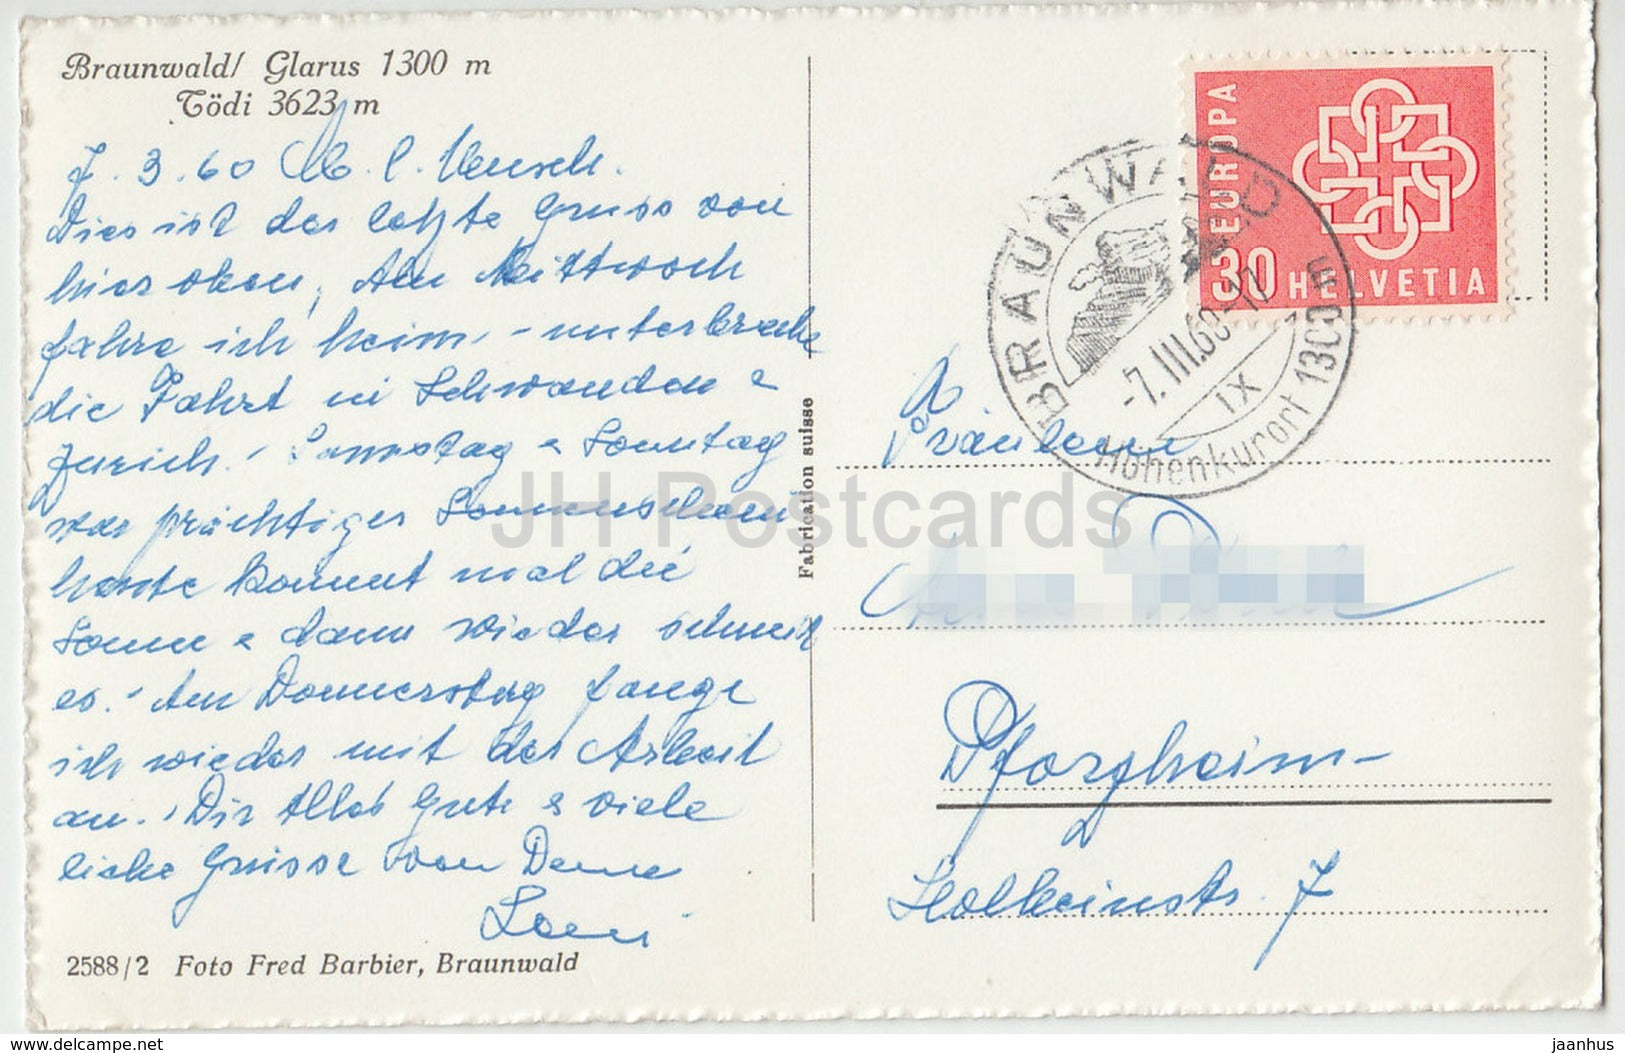 Braunwald/ Glarus 1300 m
Tödi 3623 m
7.3.60 M. l. Mensch.
Dies ist der letzte Gruss von
hier oben, Am Mittwoch
fahre ich heim, - unterbreche
die Fahrt in Schwanden &
Zürich. Samstag & Sonntag
war prächtiger Sonnenschein
heute kommt mal die
Sonne & dann wieder schneit
es. Am Donnerstag fange
ich wieder mit der Arbeit
an. Dir Alles Gute & viele
liebe Grüsse von Deine
2588/2 Foto Fred Barbier, Braunwald
Fabrication suisse
EUROPA
30 HELVETIA
BRAUNWALD
-7.III.60-17
IX
Höhenkurort 1300 m
Fräulein
Pforzheim-
Holbeinstr. 7
JH Postcards
www.delcampe.net
jaanhus